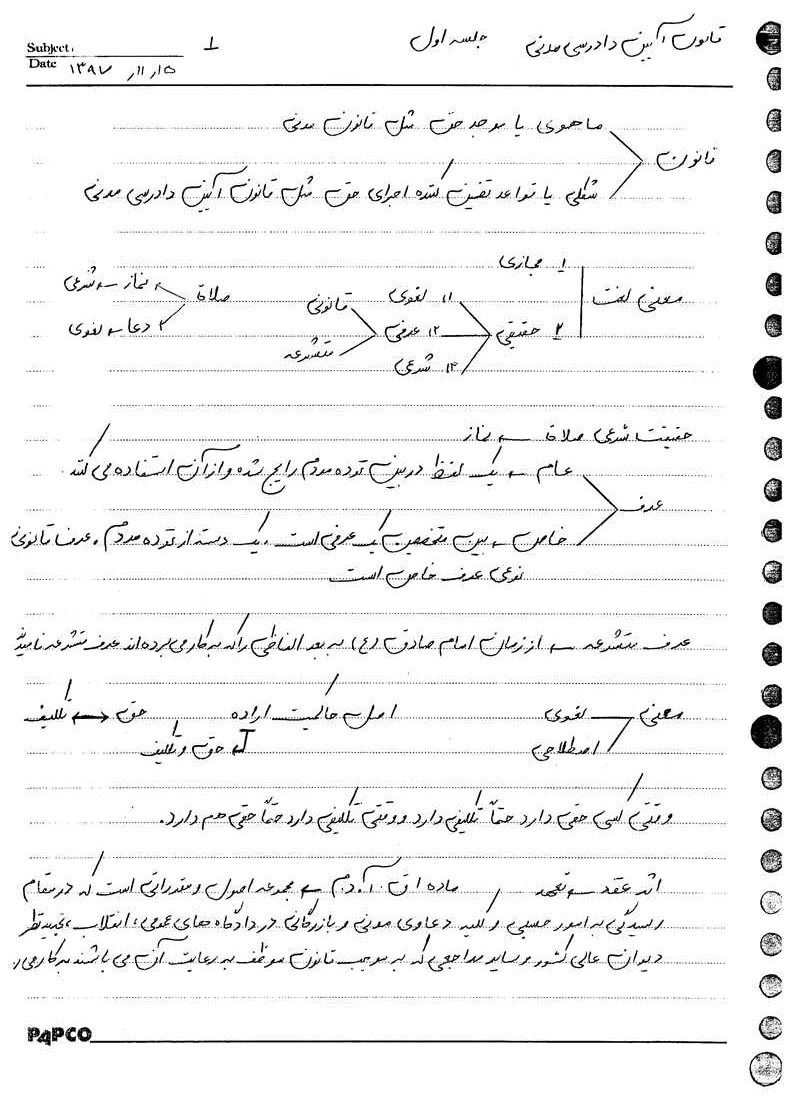 قانون آیین دادرسی مدنی جلسه اول 1
Subject:
Date ۱۳۹۷/۱۱/۱۵
ماهوی یا موجد حق مثل قانون مدنی
قانون
شکلی یا قواعد تضمین کننده اجرای حق مثل قانون آیین دادرسی مدنی
۱ مجازی
معنی لغت
۲ حقیقی
۱) لغوی
۲) عرفی
۳) شرعی
قانونی
متشرعه
صلاة
نماز ← شرعی
دعا ← لغوی
حقیقت شرعی صلاة ← نماز
عام ← یک لفظ در بین توده مردم رایج شده و از آن استفاده می کنند.
عرف
خاص ← بین متخصصین یک عرفی است. یک دسته از توده مردم. عرف قانونی
نوعی عرف خاص است
عرف متشرعه ← از زمان امام صادق (ع) به بعد الفاظی را که به کار می برده اند عرف متشرعه نامیدند
معنی لغوی اصل حاکمیت اراده حق ↔ تکلیف
اصطلاحی حق و تکلیف
وقتی کسی حقی دارد حتماً تکلیفی دارد و وقتی تکلیفی دارد حتماً حقی هم دارد.
اثر عقد ← تعهد / ماده ۱ ق.آ.د.م ← مجموعه اصول و مقرراتی است که در مقام
رسیدگی به امور حسبی و کلیه دعاوی مدنی و بازرگانی در دادگاه های عمومی، انقلاب، تجدیدنظر
دیوان عالی کشور و سایر مراجعی که به موجب قانون موظف به رعایت آن می باشند به کار می رود
PAPCO